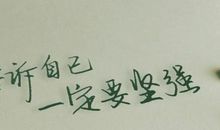 诉自己
一定要坚强